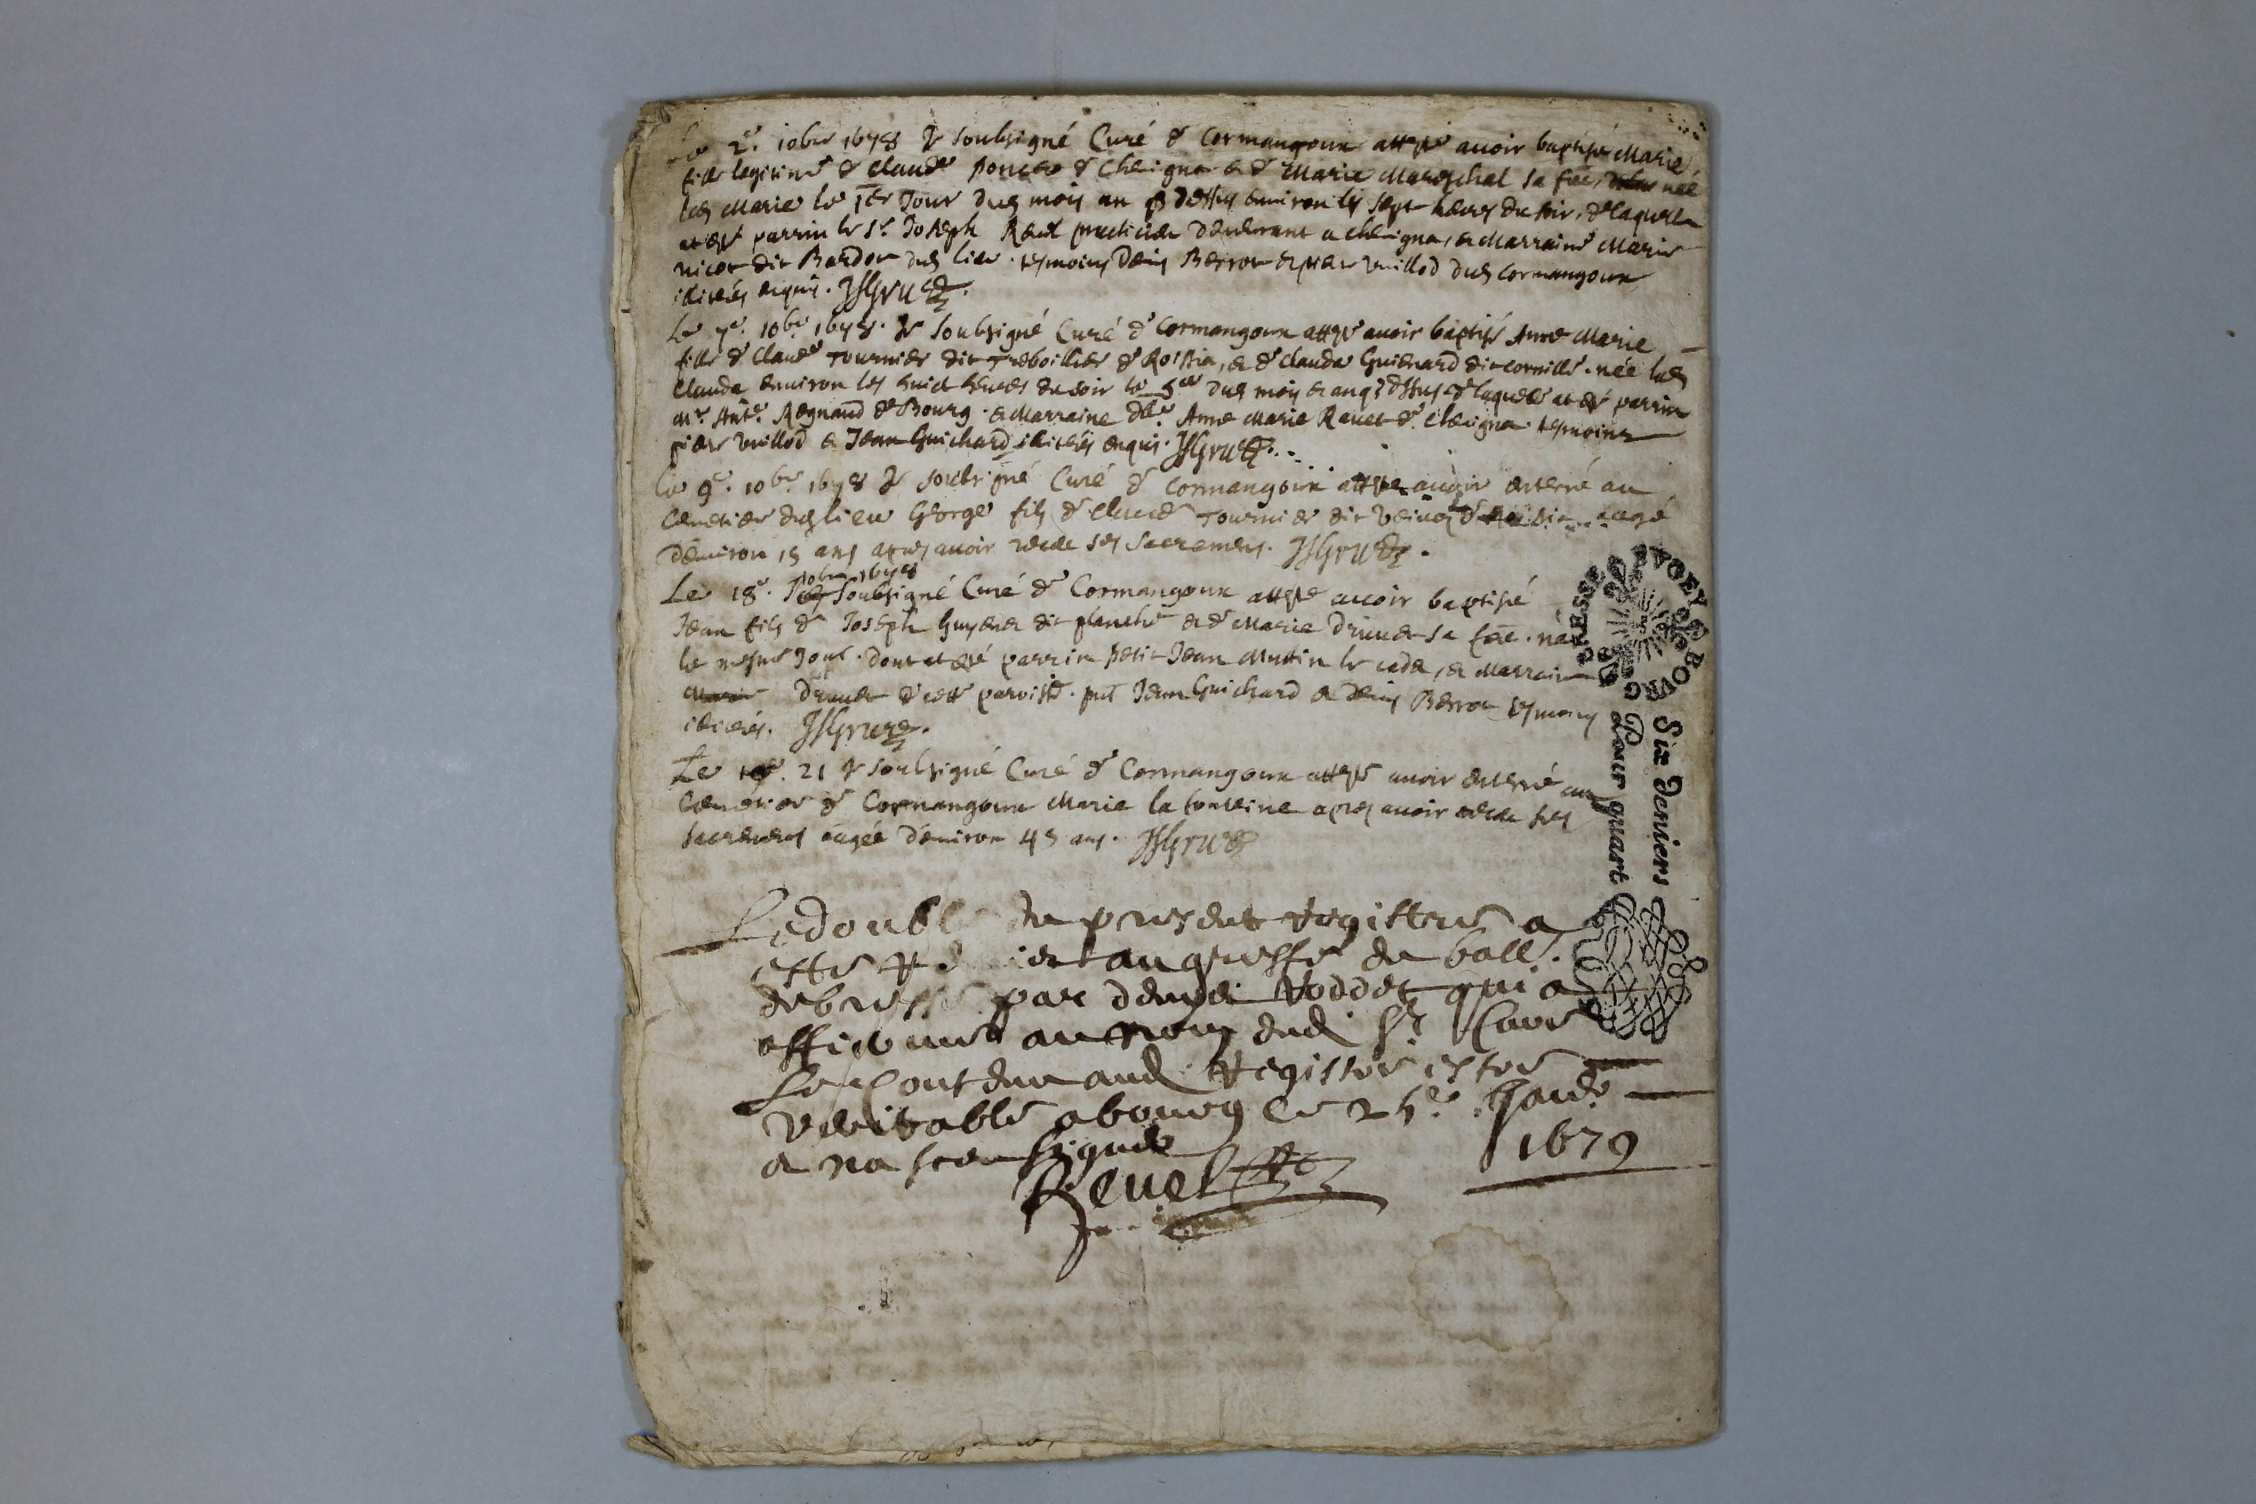 Le 2e. 10bre 1678 Je soubsigné Curé de Cormangoux atteste avoir baptisé Marie
fille legitime de Claude de Chevigna et de Marie Mareschal sa fẽe, née
Marie le 1er Jour du mois an dessus environ les sept heures du soir, de laquelle
at esté parrin le Sr. Joseph practicien demeurant a chevigna, et Marraine Marie
nicot dit Bardot dud lieu. tesmoins Denis Berrot et pierre vuillod dud cormangoux
illiterés enquis.
Le 7e. 10bre 1678. Je soubsigné Curé de Cormangoux atteste avoir baptisé Anne Marie
fille de Claude Tournier dit Treboillier de Rossia, et de Clauda Guichard dit cornille. née lad
Clauda environ les huict heures du soir le dud mois et an dessus de laquelle at esté parrin
Mr. Ante. Regnaud de Bourg. et Marraine dlle. Anne Marie Ravet de chevigna. tesmoins
pierre vuillod et Jean Guichard illiterés enquis.
Le 9e. 10bre 1678 Je soubsigné Curé de Cormangoux atteste avoir enterré au
cemetiere dud lieu George fils de Claude Tournier dit aagé
d'environ 15 ans apres avoir receu ses sacremens.
Le 18e. 10bre 1678 Je Soubsigné Curé de Cormangoux atteste avoir baptisé
Jean fils de Joseph dit planche et de Marie Druuet sa fẽe. né
le mesme Jour. dont at esté parrin petit Jean Muttin le cadet, et Marraine
Druuet de cette paroisse. pnt Jean Guichard et Denis Berrot tesmoins
illiterés.
Le 21 Je soubsigné Curé de Cormangoux atteste avoir enterré au
cemetiere de Cormangoux Marie la fonteine apres avoir receu ses
sacremens aagée d'environ 45 ans.
Le double du present registre a
esté au greffe du ball.
de bresse par qui a
affirmé au nom dud Sr Curé
Le contenu aud Registre estre
veritable a bourg Le 25e. Janv.
1679
a na sceu signer
Reuel
GG BRESSE BVGEY BOVRG
Six deniers
Pour quart